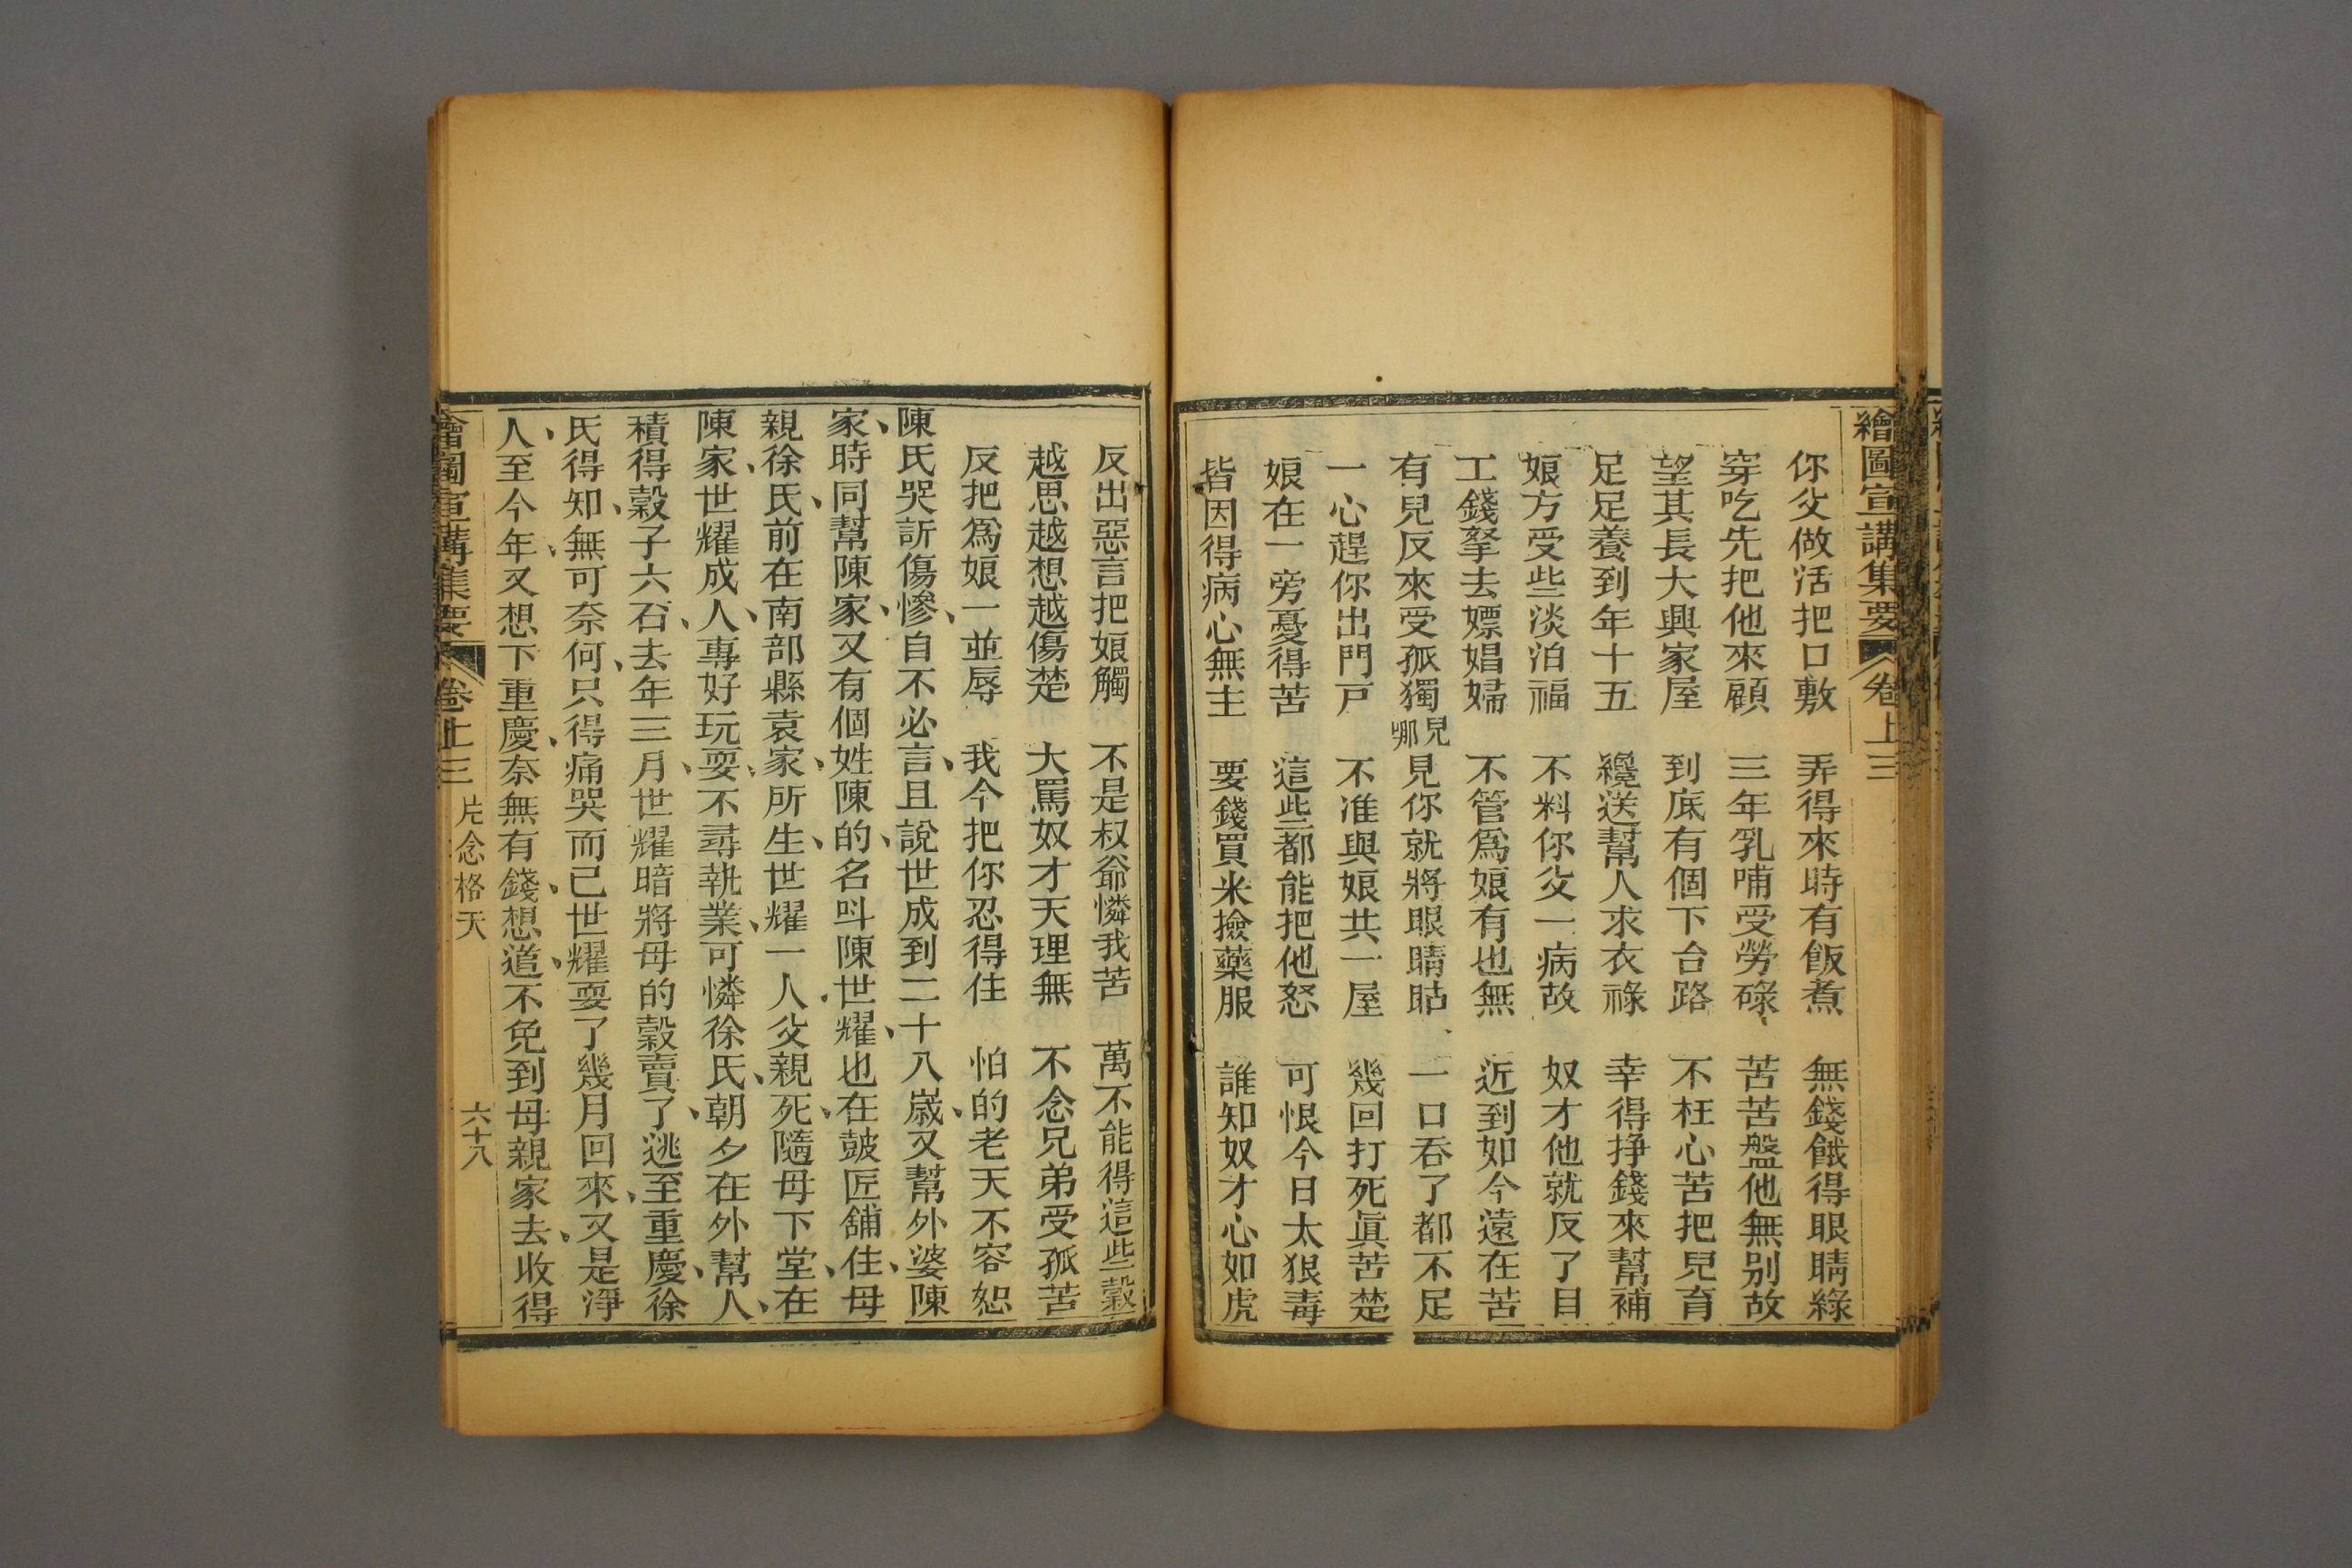 繪圖宣講集要 卷上三
你父做活把口敷 弄得來時有飯煮 無錢餓得眼睛綠
穿吃先把他來顧 三年乳哺受勞碌 苦苦盤他無别故
望其長大興家屋 到底有個下台路 不枉心苦把兒育
足足養到年十五 纔送幫人求衣祿 幸得掙錢來幫補
娘方受些淡泊福 不料你父一病故 奴才他就反了目
工錢拏去嫖娼婦 不管爲娘有也無 近到如今遠在苦
有兒反來受孤獨 兒哪 見你就將眼睛𥄫 一口吞了都不足
一心趕你出門戸 不准與娘共一屋 幾回打死眞苦楚
娘在一旁憂得苦 這些都能把他怒 可恨今日太狠毒
皆因得病心無主 要錢買米撿藥服 誰知奴才心如虎
反出惡言把娘觸 不是叔爺憐我苦 萬不能得這些穀
越思越想越傷楚 大罵奴才天理無 不念兄弟受孤苦
反把爲娘一並辱 我今把你忍得住 怕的老天不容恕
陳氏哭訴傷慘、自不必言、且說世成到二十八歲、又幫外婆陳
家、時同幫陳家、又有個姓陳的、名呌陳世耀、也在鼓匠舖住、母
親徐氏、前在南部縣袁家、所生、世耀一人、父親死、隨母下堂、在
陳家、世耀成人、專好玩耍、不尋執業、可憐徐氏、朝夕在外幫人、
積得穀子六石、去年三月、世耀暗將母的穀賣了、逃至重慶、徐
氏得知、無可奈何、只得痛哭而已世耀耍了幾月回來、又是淨
人、至今年、又想下重慶、奈無有錢、想道、不免到母親家去、收得
繪圖宣講集要 卷上三 片念格天 六十八